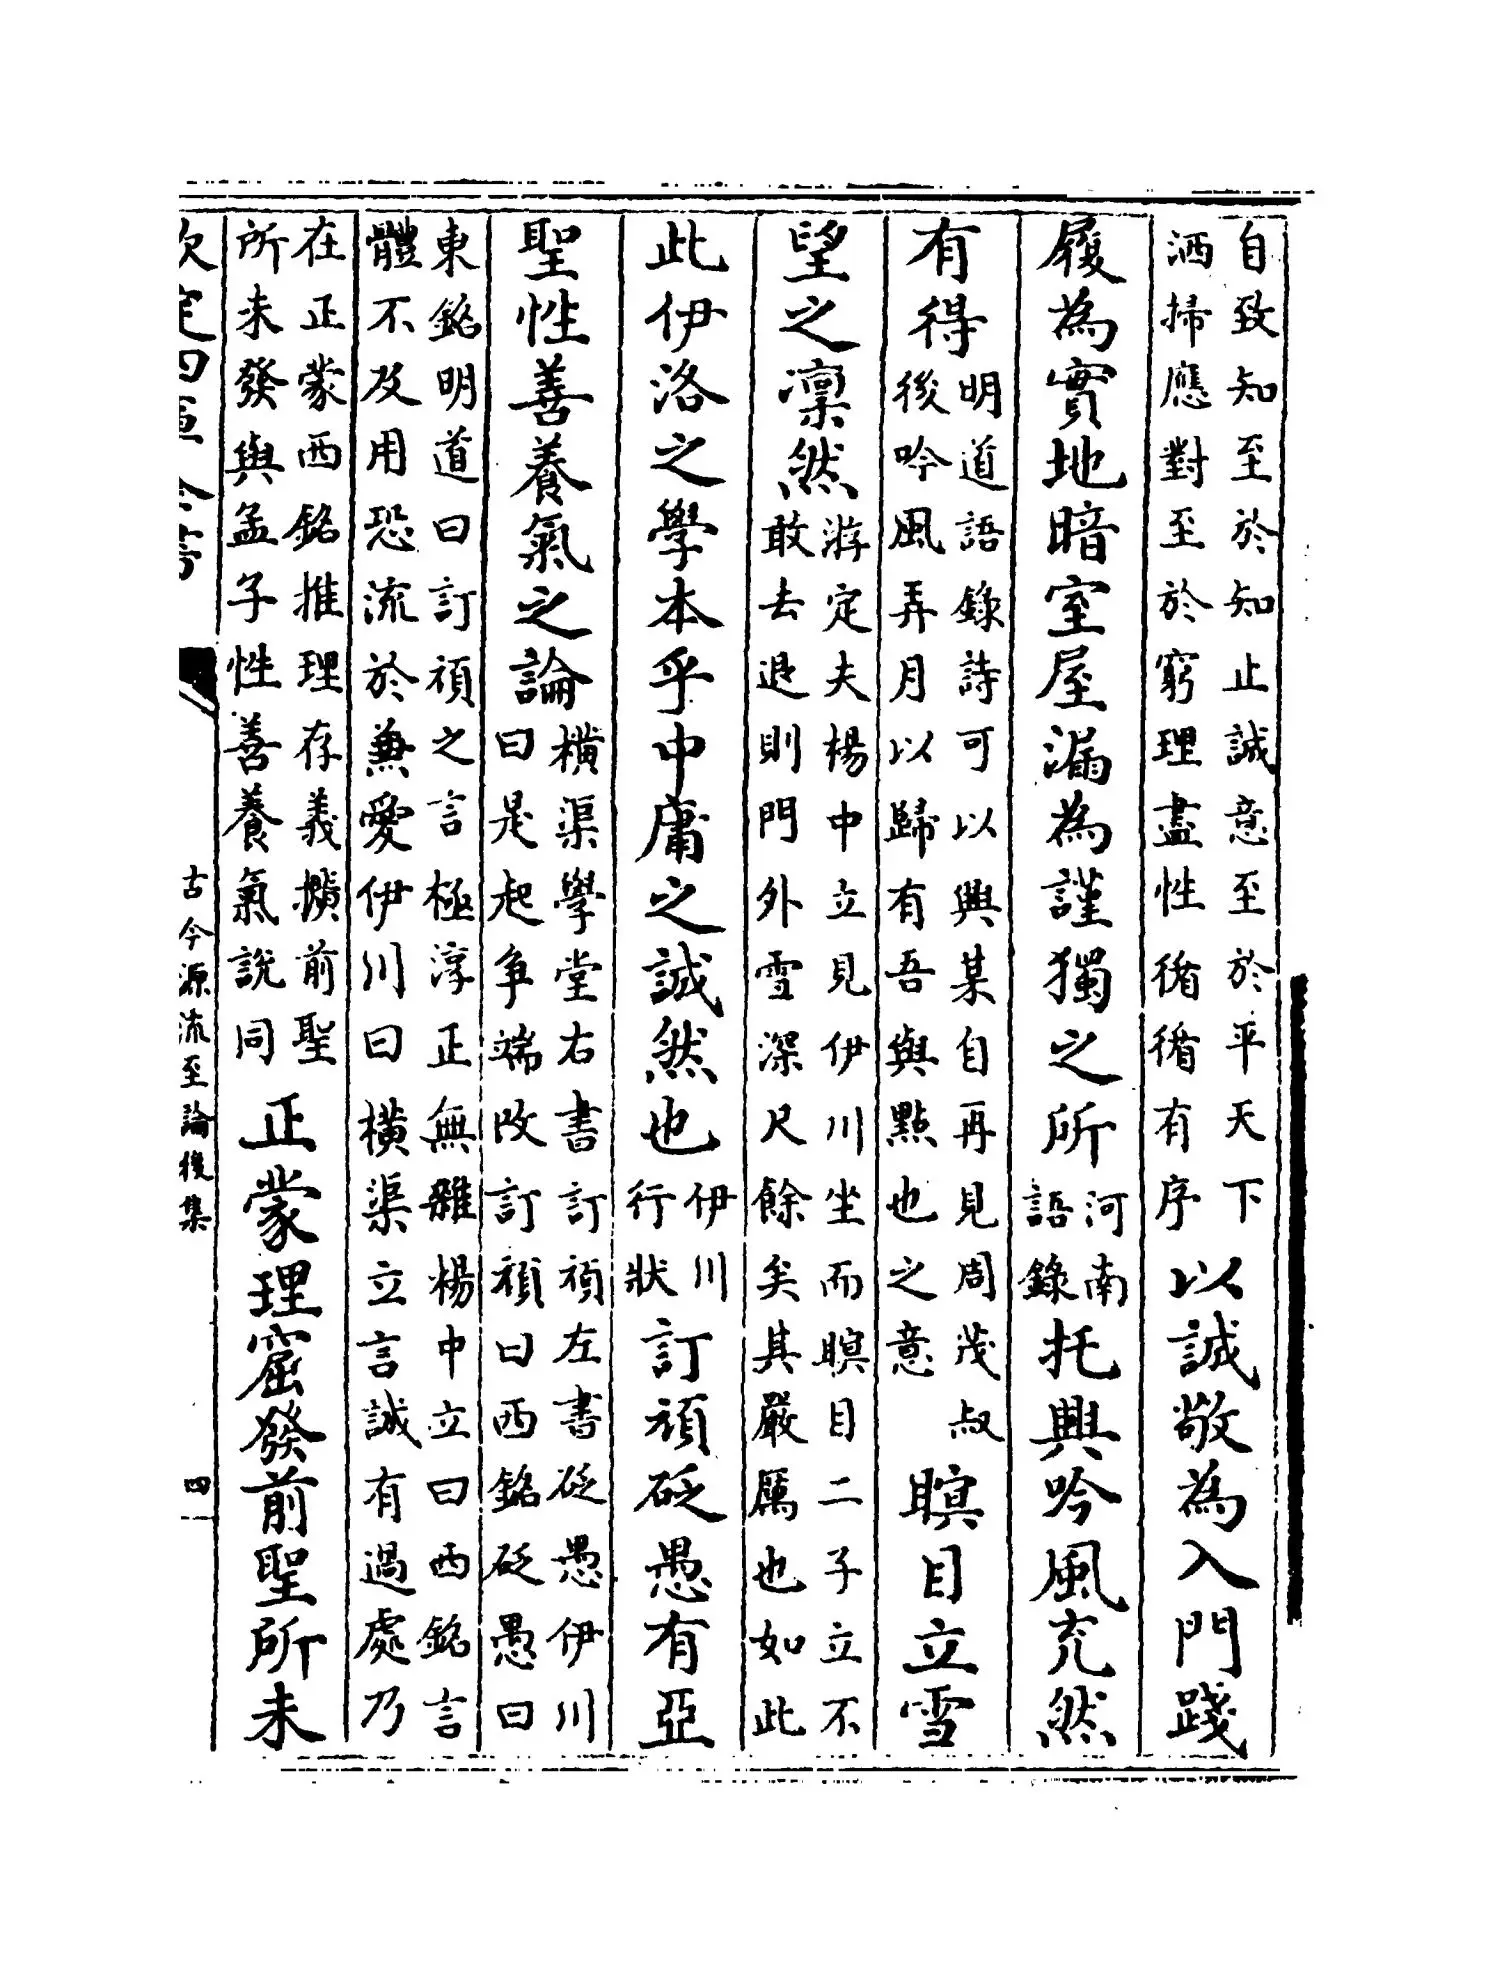 自致知至於知止誠意至於平天下
洒掃應對至於窮理盡性循循有序
以誠敬為入門踐
履為實地暗室屋漏為謹獨之所
河南
語錄
托興吟風充然
有得
明道語錄詩可以興某自再見周茂叔
後吟風弄月以歸有吾與點也之意
瞑目立雪
望之凜然
游定夫楊中立見伊川坐而瞑目二子立不
敢去退則門外雪深尺餘矣其嚴厲也如此
此伊洛之學本乎中庸之誠然也
伊川
行狀
訂頑砭愚有亞
聖性善養氣之論
横渠學堂右書訂頑左書砭愚伊川
曰是起爭端改訂頑曰西銘砭愚曰
東銘明道曰訂頑之言極淳正無雜楊中立曰西銘言
體不及用恐流於兼愛伊川曰横渠立言誠有過處乃
在正蒙西銘推理存義擴前聖
所未發與孟子性善養氣說同
正蒙理窟發前聖所未
欽定四庫全書
古今源流至論後集
四